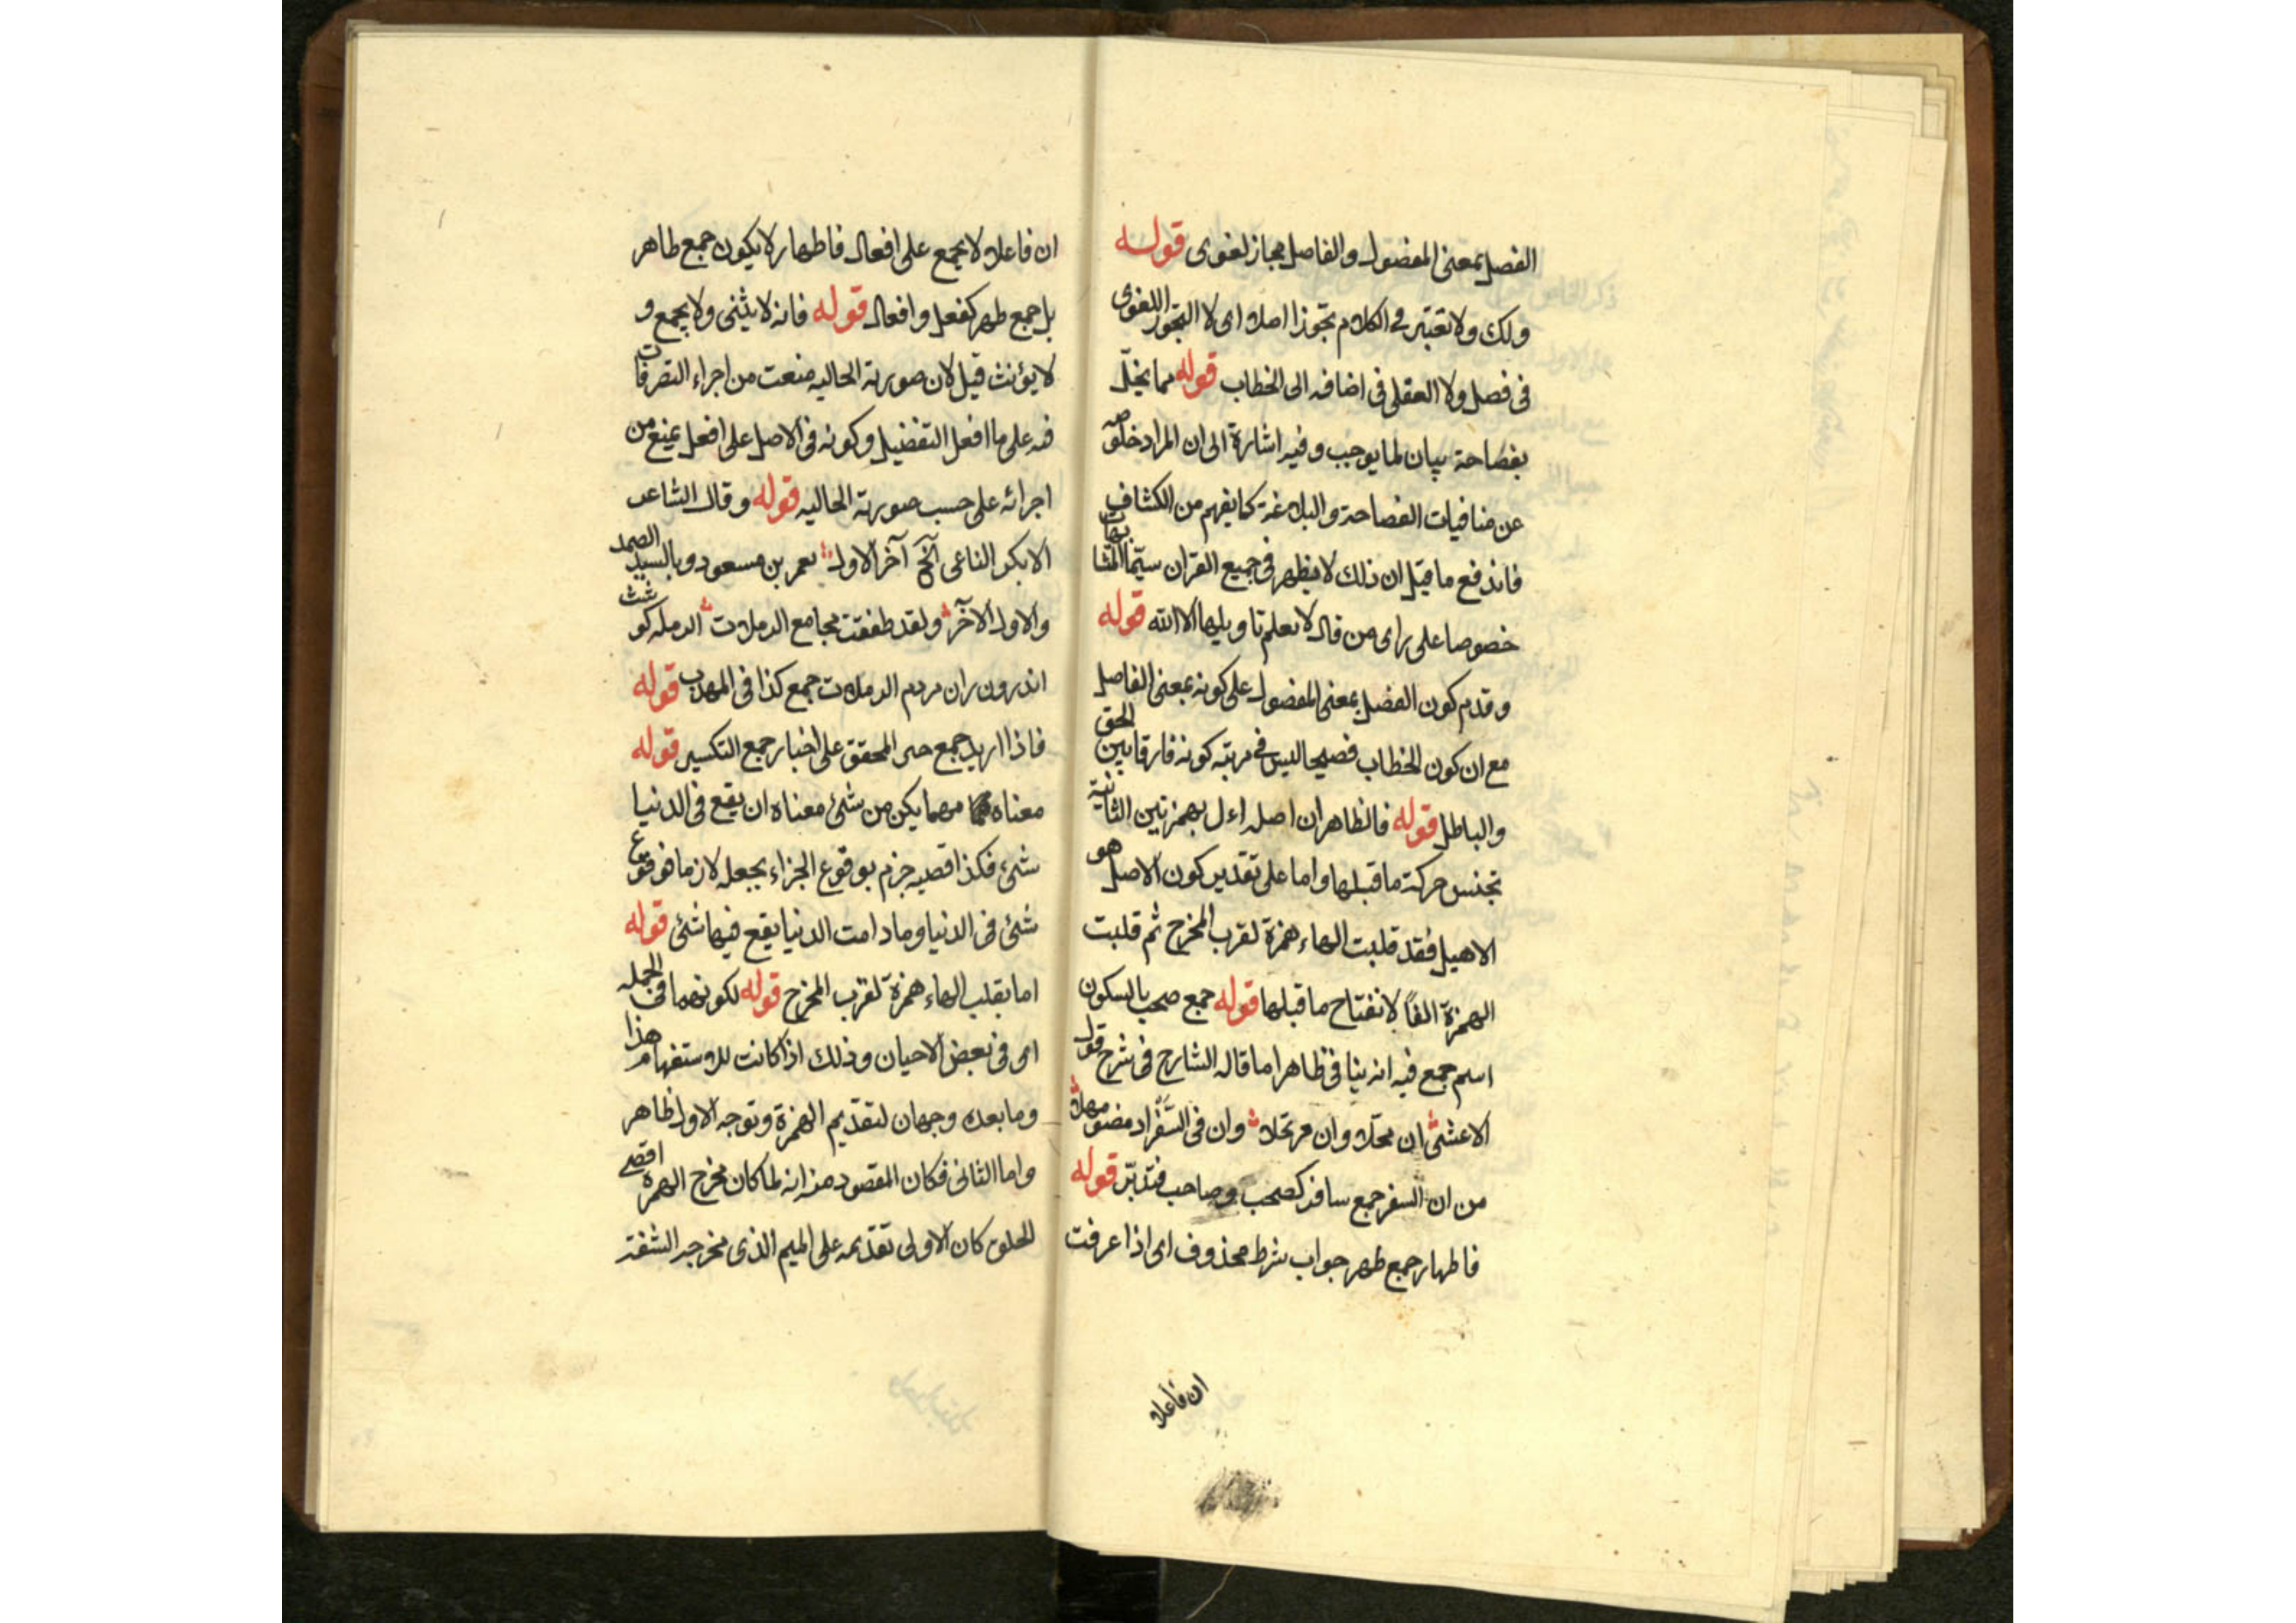 الفصل بمعنى المفضول والفاصل مجاز لغوى قوله
ولك ولا تعتبر فى الكلام تجوزا اصلا اى لا التجوز اللغوى
فى فصل ولا العقلى فى اضافه الى الخطاب قوله مما يخلّ
بفصاحة بيان لما يوجب وفيه اشارة الى ان المراد خلوصه
عن منافيات الفصاحة والبلاغة كما يفهم من الكشاف
فاندفع ما قيل ان ذلك لا يظهر فى جميع القران سيّما المتشابهات
خصوصا على راى من قال لا يعلم تاويلها الا الله قوله
وقدم كون الفصل بمعنى المفضول على كونه بمعنى الفاصل
مع ان كون الخطاب فصيحا ليس فى مرتبة كونه فارقا بين الحق
والباطل قوله فالظاهر ان اصله اءل بهمزتين الثانية
تجنس حركة ما قبلها واما على تقدير كون الاصل هو
الاهيل فقد قلبت الهاء همزة لقرب المخرج ثم قلبت
الهمزة الفًا لانفتاح ما قبلها قوله جمع صحب بالسكون
اسم جمع فيه انه ينافى ظاهرا ما قاله الشارح فى شرح قول
الاعشى ان محلا وان مرتحلا وان فى السَّفْر اذ مضوا مهلا
من ان السفر جمع سافر كصحب وصاحب فتدبّر قوله
فاطهار جمع طهر جواب شرط محذوف اى اذا عرفت
ان فاعلا
ان فاعلا لا يجمع على افعال فاطهار لا يكون جمع طاهر
بل جمع طهر كفعل وافعال قوله فانه لا يثنى ولا يجمع و
لا يؤنث قيل لان صورته الحاليه منعت من اجراء التصرفات
فيه على ما افعل التفضيل وكونه فى الاصل على افعل يمنع من
اجرائه على حسب صورته الحاليه قوله وقال الشاعر
الا بكر الناعى آلخ آخر الاول بعمر بن مسعود وبالسيد الصمد
والاول الآخر ولقد طفقت مجامع الرملات الرمله كو
اندرون ران مردم الرملات جمع كذا فى المهذب قوله
فاذا اريد جمع المحقق على اخبار جمع التكسير قوله
معناه مهما يكن من شئ معناه ان يقع فى الدنيا
شئ فكذا قصيه جزم بوقوع الجزاء بجعله لازما فوقوع
شئ فى الدنيا وما دامت الدنيا يقع فيها شئ قوله
اما بقلب الهاء همزة لقرب المخرج قوله لكونهما فى الجمله
اى فى بعض الاحيان وذلك اذا كانت للاستفهام هذا
وما بعده وجهان لتقديم الهمزة وتوجه الاول ظاهر
واما الثانى فكان المقصود منه انه لما كان مخرج الهمزة اقصى
الحلق كان الاولى تقديمه على الميم الذى مخرجه الشفة